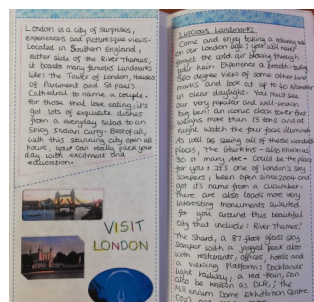 London is a city of surprises,
experiences and picturesque views.
Located in Southern England,
either side of the River Thames,
it boasts many famous landmarks
like: the Tower of London, Houses
of Parliament and St Pauls
Cathedral to name a couple.
for those that love eating, it's
got lots of exquisite dishes
from a everyday salad to an
Spicy Indian Curry. Best of all,
with this stunning city open all
hours, your can really pack your
day with excitment and
education.
VISIT
LONDON
Luscious Landmarks
Come and enjoy taking a relaxing ride
on our London eye; you will never
forget the cold air flowing through
your hair. Experience a breath-taking
360 degree view of some other land
marks and look at up to 40 kilometer
in clear daylight. You must see
our very popular and well-known
big ben: an iconic clock tower that
weighs more than 13 tons and at
night watch the four faces illuminate.
As well as seeing all of those wonderful
places, The Gherkin - also known as
30 st mary Axe - Could be the place
for you! It's one of London's sky
scrapers, been open since 2004 and
got it's name from a cucumber.
there are also loads more very
interesting monuments waited
for you around this beautiful
City that include: River Thames;
the Shard, a 87 floor glass sky
scraper with a jagged peak also
with restaurants, offices, hotels and
a viewing platform; Docklands
light Railway, a red train, can
also be known as DLR; the
Millenium Dome Exhibition Centre